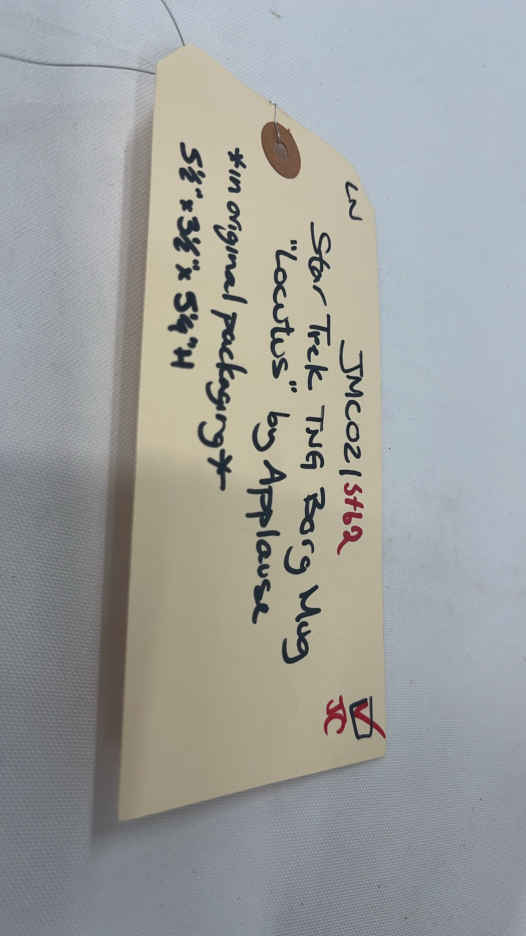 LN
JMC021 stb2
JC
Star Trek TNG Borg Mug
"Locutus" by Applause
*in original packaging*
5½" x 3½" x 5¼"H